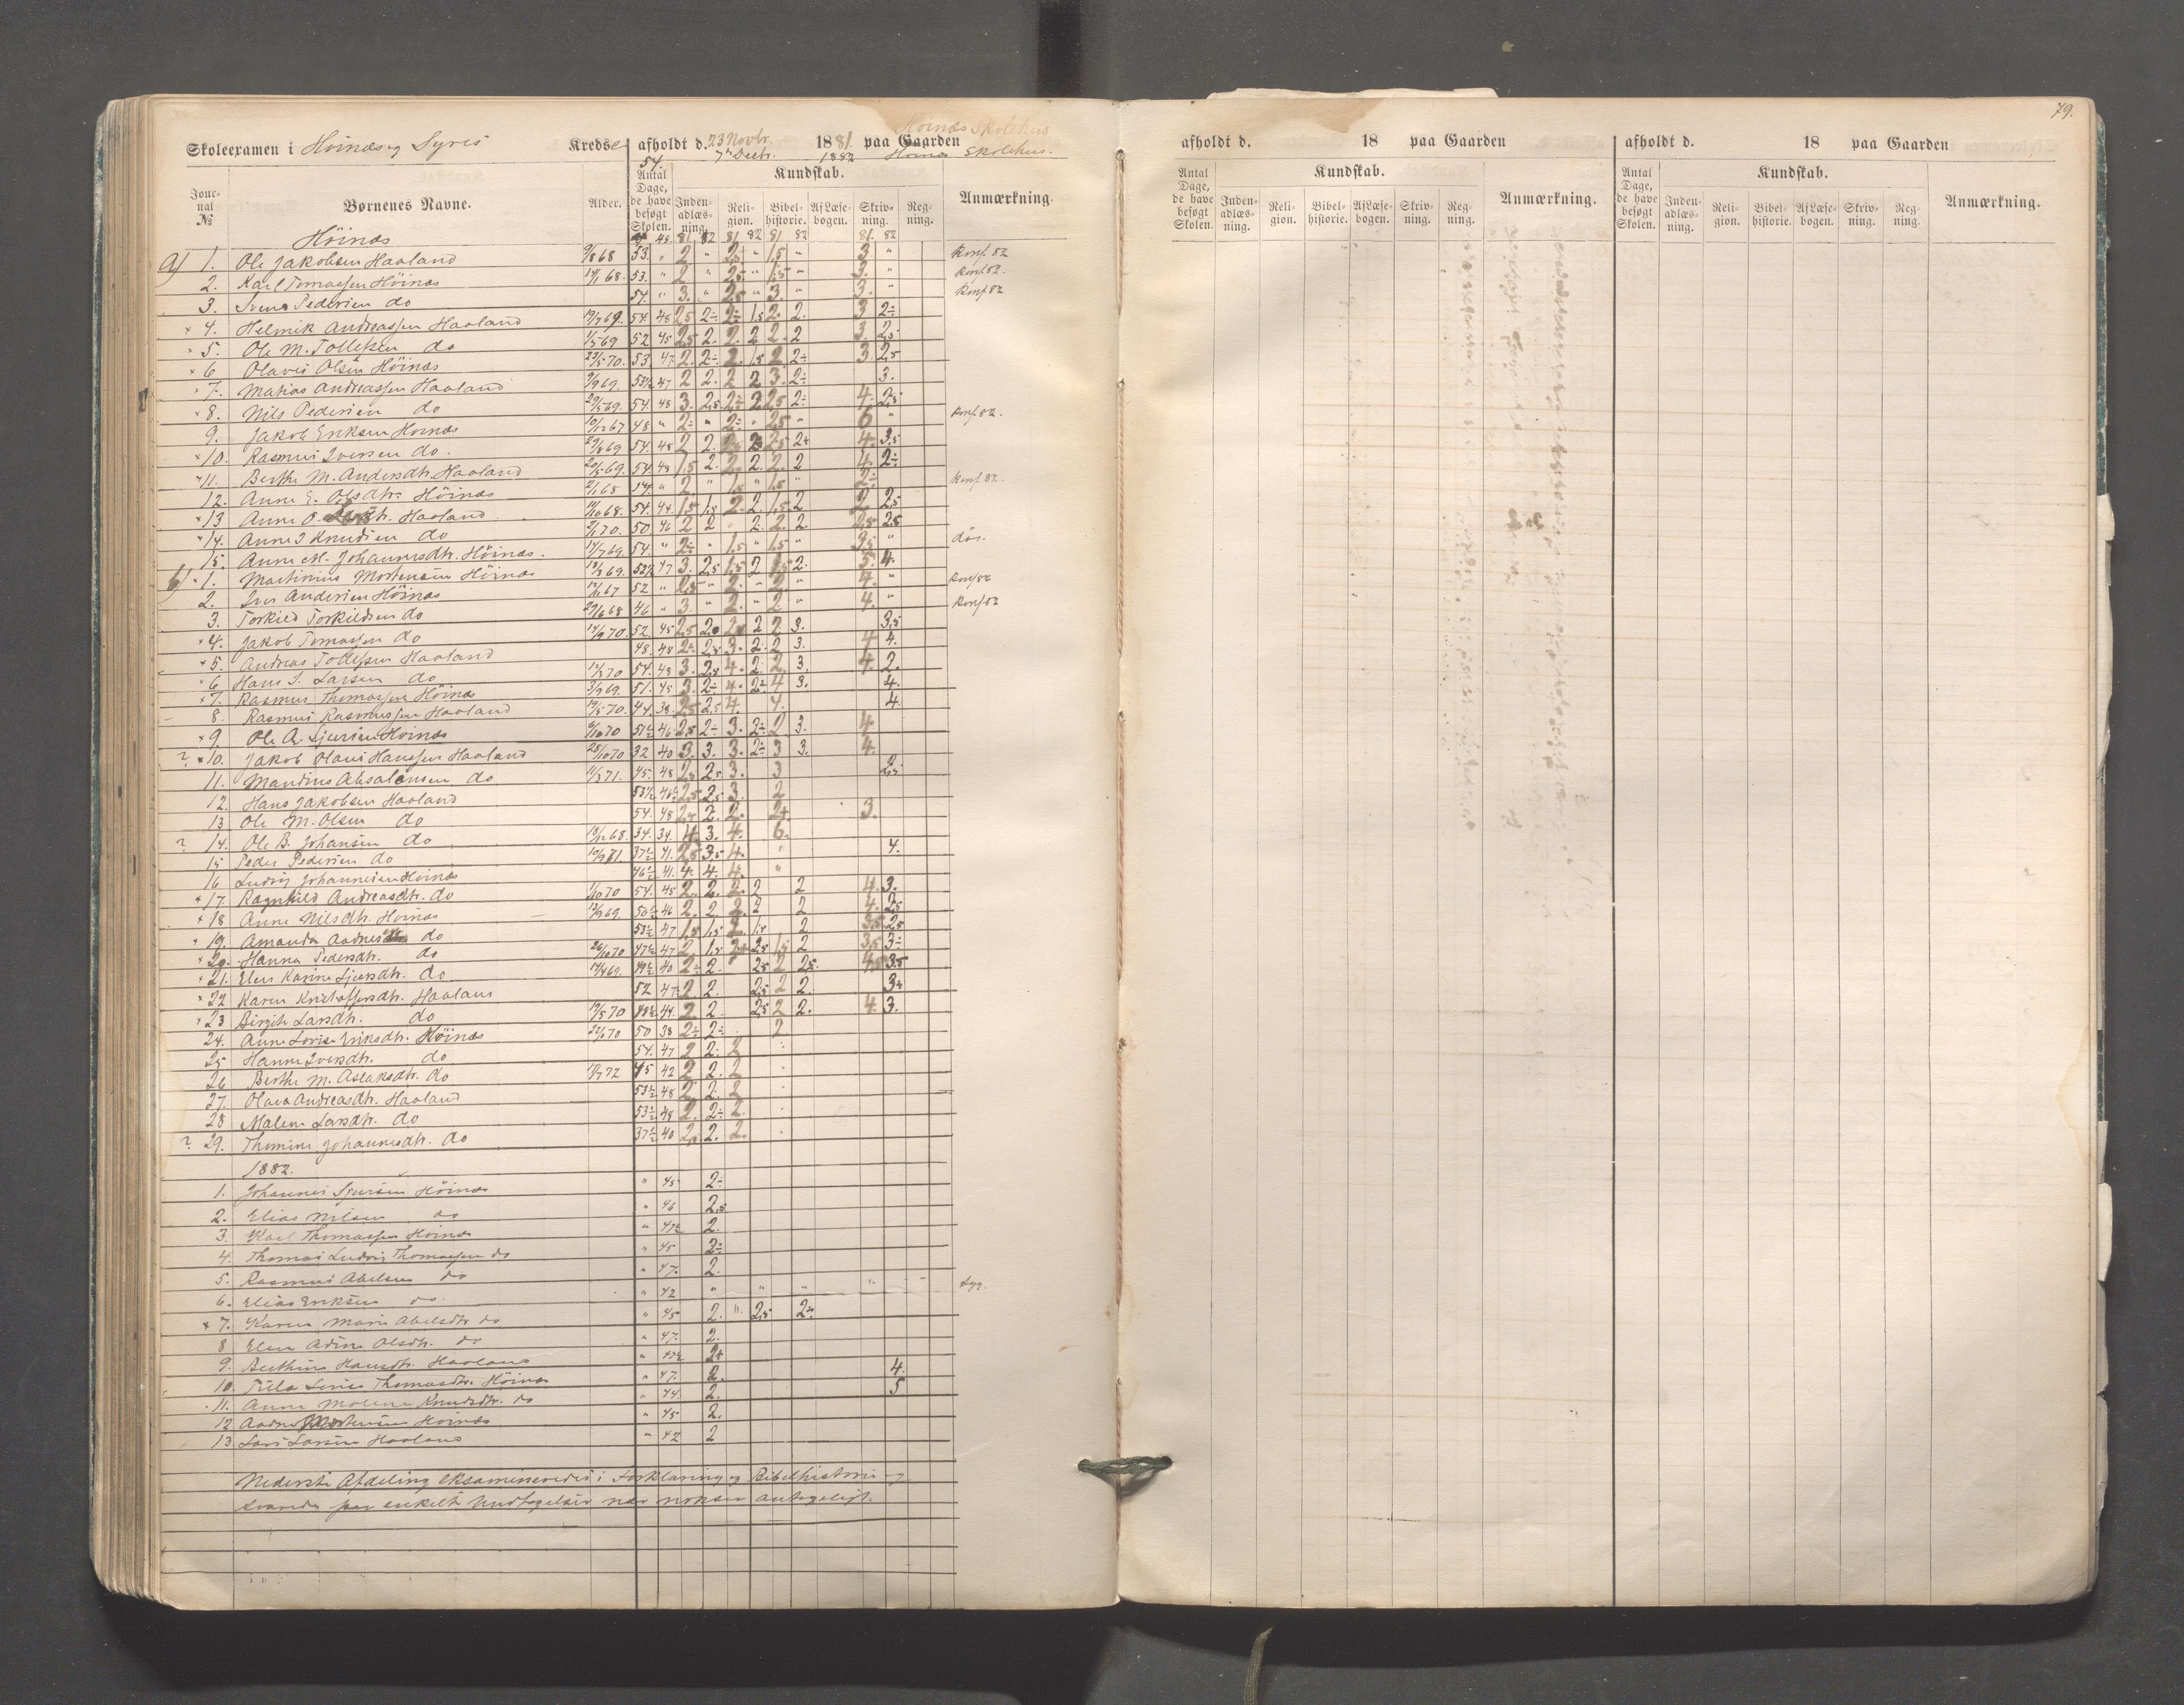 Skoleexamen i Höinæs og Syres Kredse afholdt d. 23 Novbr. 1881. paa Gaarden Höinæs Skolehus
7de Decbr. 1882 Höinæs Skolehus.
Jour-nal № Børnenes Navne. Alder. Antal Dage, de have besøgt Skolen. Kundskab. Inden-adlæs-ning. Reli-gion. Bibel-historie. Af Læse-bogen. Skriv-ning. Reg-ning. Anmærkning.
54. 48 81 82 81 82 81 82 81. 82
Höinæs
a) 1. Ole Jakobsen Haaland 9/8 68 53. " 2 " 2+ " 1,5 " 3 " Konf. 82
2. Karl Tomassen Höinæs 68. 53. " 2 " 2,5 " 1,5 " 3. " Konf. 82.
3. Svend Pedersen do 54. " 3. " " 3. " 3. " Konf 82
× 4. Helmik Andreassen Haaland 69. 54. 48 2,5 2÷ 2÷ 1,5 2. 2. 3 2÷
× 5. Ole M. Tollefsen do 1/5 69 52 45 2,5 2. 2. 2 2 2 3. 2,5
× 6 Olaves Olsen Höinæs 23/5 70. 53. 47. 2. 2÷ 2. 1,5 2 2÷ 3. 2,5
× 7. Matias Andreassen Haaland 9/9 69. 53½ 47 2 2. 2 2 3. 2÷ 3.
× 8. Nils Pedersen do 29/5 69. 54. 48 3. 2,5 2÷ 2 2,5 2÷ 4. 2,5
9. Jakob Eriksen Höinæs 10/12 67 48 " 2÷ " 2÷ " 2,5 " 6 " Konf. 82.
× 10. Rasmus Iversen do. 29/8 69 54. 48 2 2. 2,5 2+ 4. 3,5
× 11. Berthe M. Andersdtr. Haaland 69. 54. 48 1,5 2. 2. 2. 2. 2 4. 2÷
12. Anne E. Olsdtr. Höinæs 68 54. " 2. " 1,5 " 1,5 " 2÷ Konf. 82.
× 13 Anne O. Haaland 68. 54. 44. 1,5 1,5 2. 2 1,5 2 2 2,5
× 14. Anne I Knudsen do 70. 50 46 2 2 2. 2. 2. 2,5 2,5
15. Anne M. Johannesdtr. Höinæs. 14/7 69. 54. " 2÷ " 1,5 " 1,5 " 3,5 " döv.
b) × 1. Martinius Mortensen Höinæs 69. 52½ 47 3. 2,5 1,5 2 1,5 2. 5. 4.
2. Iver Andersen Höinæs 67 52 " 2,5 " 2. " 2. " 4. " Konf 82
3. Torkild Torkildsen do 29/6 68 46 " 3. " 2. " 2. " 4. " Konf. 82
× 4. Jakob Tomassen do 70. 52. 45 2,5 2. 2 2 2 3. 3,5
× 5. Andreas Tollefsen Haaland 48. 48 2÷ 2,5 3. 2. 2 3. 4 4.
× 6 Hans S. Larsen do 70 54. 48 3. 2,5 4. 2. 2. 3. 4. 2.
× 7. Rasmus Thomassen Höinæs 3/9 69. 51. 45 3. 2÷ 4. 2÷ 4 3. 4.
8. Rasmus Rasmussen Haaland 19/5 70. 44. 38. 2,5 2,5 4. 4. 4
× 9. Ole A. Sjursen Höinæs 70 51½ 46 2,5 2÷ 3. 2÷ 2 3. 4
? × 10. Jakob Olaus Hanssen Haaland 28/10 70 32 40 3. 3. 3. 2÷ 3 3. 4.
11. Mandius Absalonsen do 71. 45. 48 2,5 2,5 3. 3 2,5
12. Hans Jakobsen Haaland 53½ 46½ 2,5 2,5 3. 2
13 Ole M. Olsen do 54. 48 2. 2. 2. 2+ 3.
? 14. Ole B. Johansen do 18/12 68. 34. 34. 4. 3. 4. 6.
15 Peder Pedersen do 71. 37½ 41. 2,5 3,5 4. " 4.
16 Ludvig Johannesen Höinæs 46½ 41. 4. 4. 4. "
× 17. Ragnhild Andreasdtr. do 70 54. 45 2. 2. 2. 2 2 4. 3.
× 18 Anne Nilsdtr. Höinæs 69. 50½ 46 2. 2. 2. 2 2 4. 2,5
× 19. Amanda do 53½ 47 1,5 1,5 2. 1,5 2. 3,5 2,5
× 20. Hanna Pedersdtr. do 26/10 70 47½ 47 2 1,5 2+ 2,5 1,5 2 3,5 3÷
× 21. Elen Karine Sjursdtr. do 69. 49½ 40 2÷ 2. 2,5 2 2,5. 4,5 3,5
× 22 Karen Kristoffersdtr. Haaland 52 47 2. 2. 2,5 2 2. 3÷
× 23 Birgithe Larsdtr. do 19/5 70 48½ 44. 2. 2 2,5 2 2. 4. 3.
24. Anne Lovise Eriksdtr. Höinæs 22/6 70 50 38 2÷ 2÷ 2.
25 Hanne Iversdtr. do 54. 47 2 2. 2
26 Berthe M. Aslaksdtr. do 72 45 42 2 2. 2
27. Olava Andreasdtr. Haaland 53½ 48 2. 2. 2
28 Malene Larsdtr. do 53½ 48 2. 2÷ 2.
? 29. Thomine Johannesdtr. do 37½ 40 2. 2. 2.
1882.
1. Johannes Sjursen Höinæs " 45 2÷
2. Elias Nilsen do " 46 2,5
3. Karl Thomassen Höinæs " 47½ 2.
4. Thomas Ludvig Thomassen do " 45 2÷
5. Rasmus Abelsen do " 47. 2.
6. Elias Eriksen do. " 42 " " " " - syg.
× 7. Karen Marie Abelsdtr do " 45 2. " 2,5 2÷
8 Elen Adine Olsdtr. do " 47. 2.
9. Berthine Hansdtr. Haaland " 47½ 2+
10. Thomasdtr. Höinæs " 47. 2. 4.
11. Anne Malene Knudsdtr. do " 44. 2. 5
12 Mortensen Höinæs " 45 2.
13 Lars Larsen Haaland " 42 2
Nederste Afdeling eksamineredes i Forklaring og Bibelhistorie og
svarede paa enkelte Undtagelser nær noksaa antageligt.
79.
afholdt d. 18 paa Gaarden afholdt d. 18 paa Gaarden
Antal Dage, de have besøgt Skolen. Kundskab. Inden-adlæs-ning. Reli-gion. Bibel-historie. Af Læse-bogen. Skriv-ning. Reg-ning. Anmærkning.
Antal Dage, de have besøgt Skolen. Kundskab. Inden-adlæs-ning. Reli-gion. Bibel-historie. Af Læse-bogen. Skriv-ning. Reg-ning. Anmærkning.